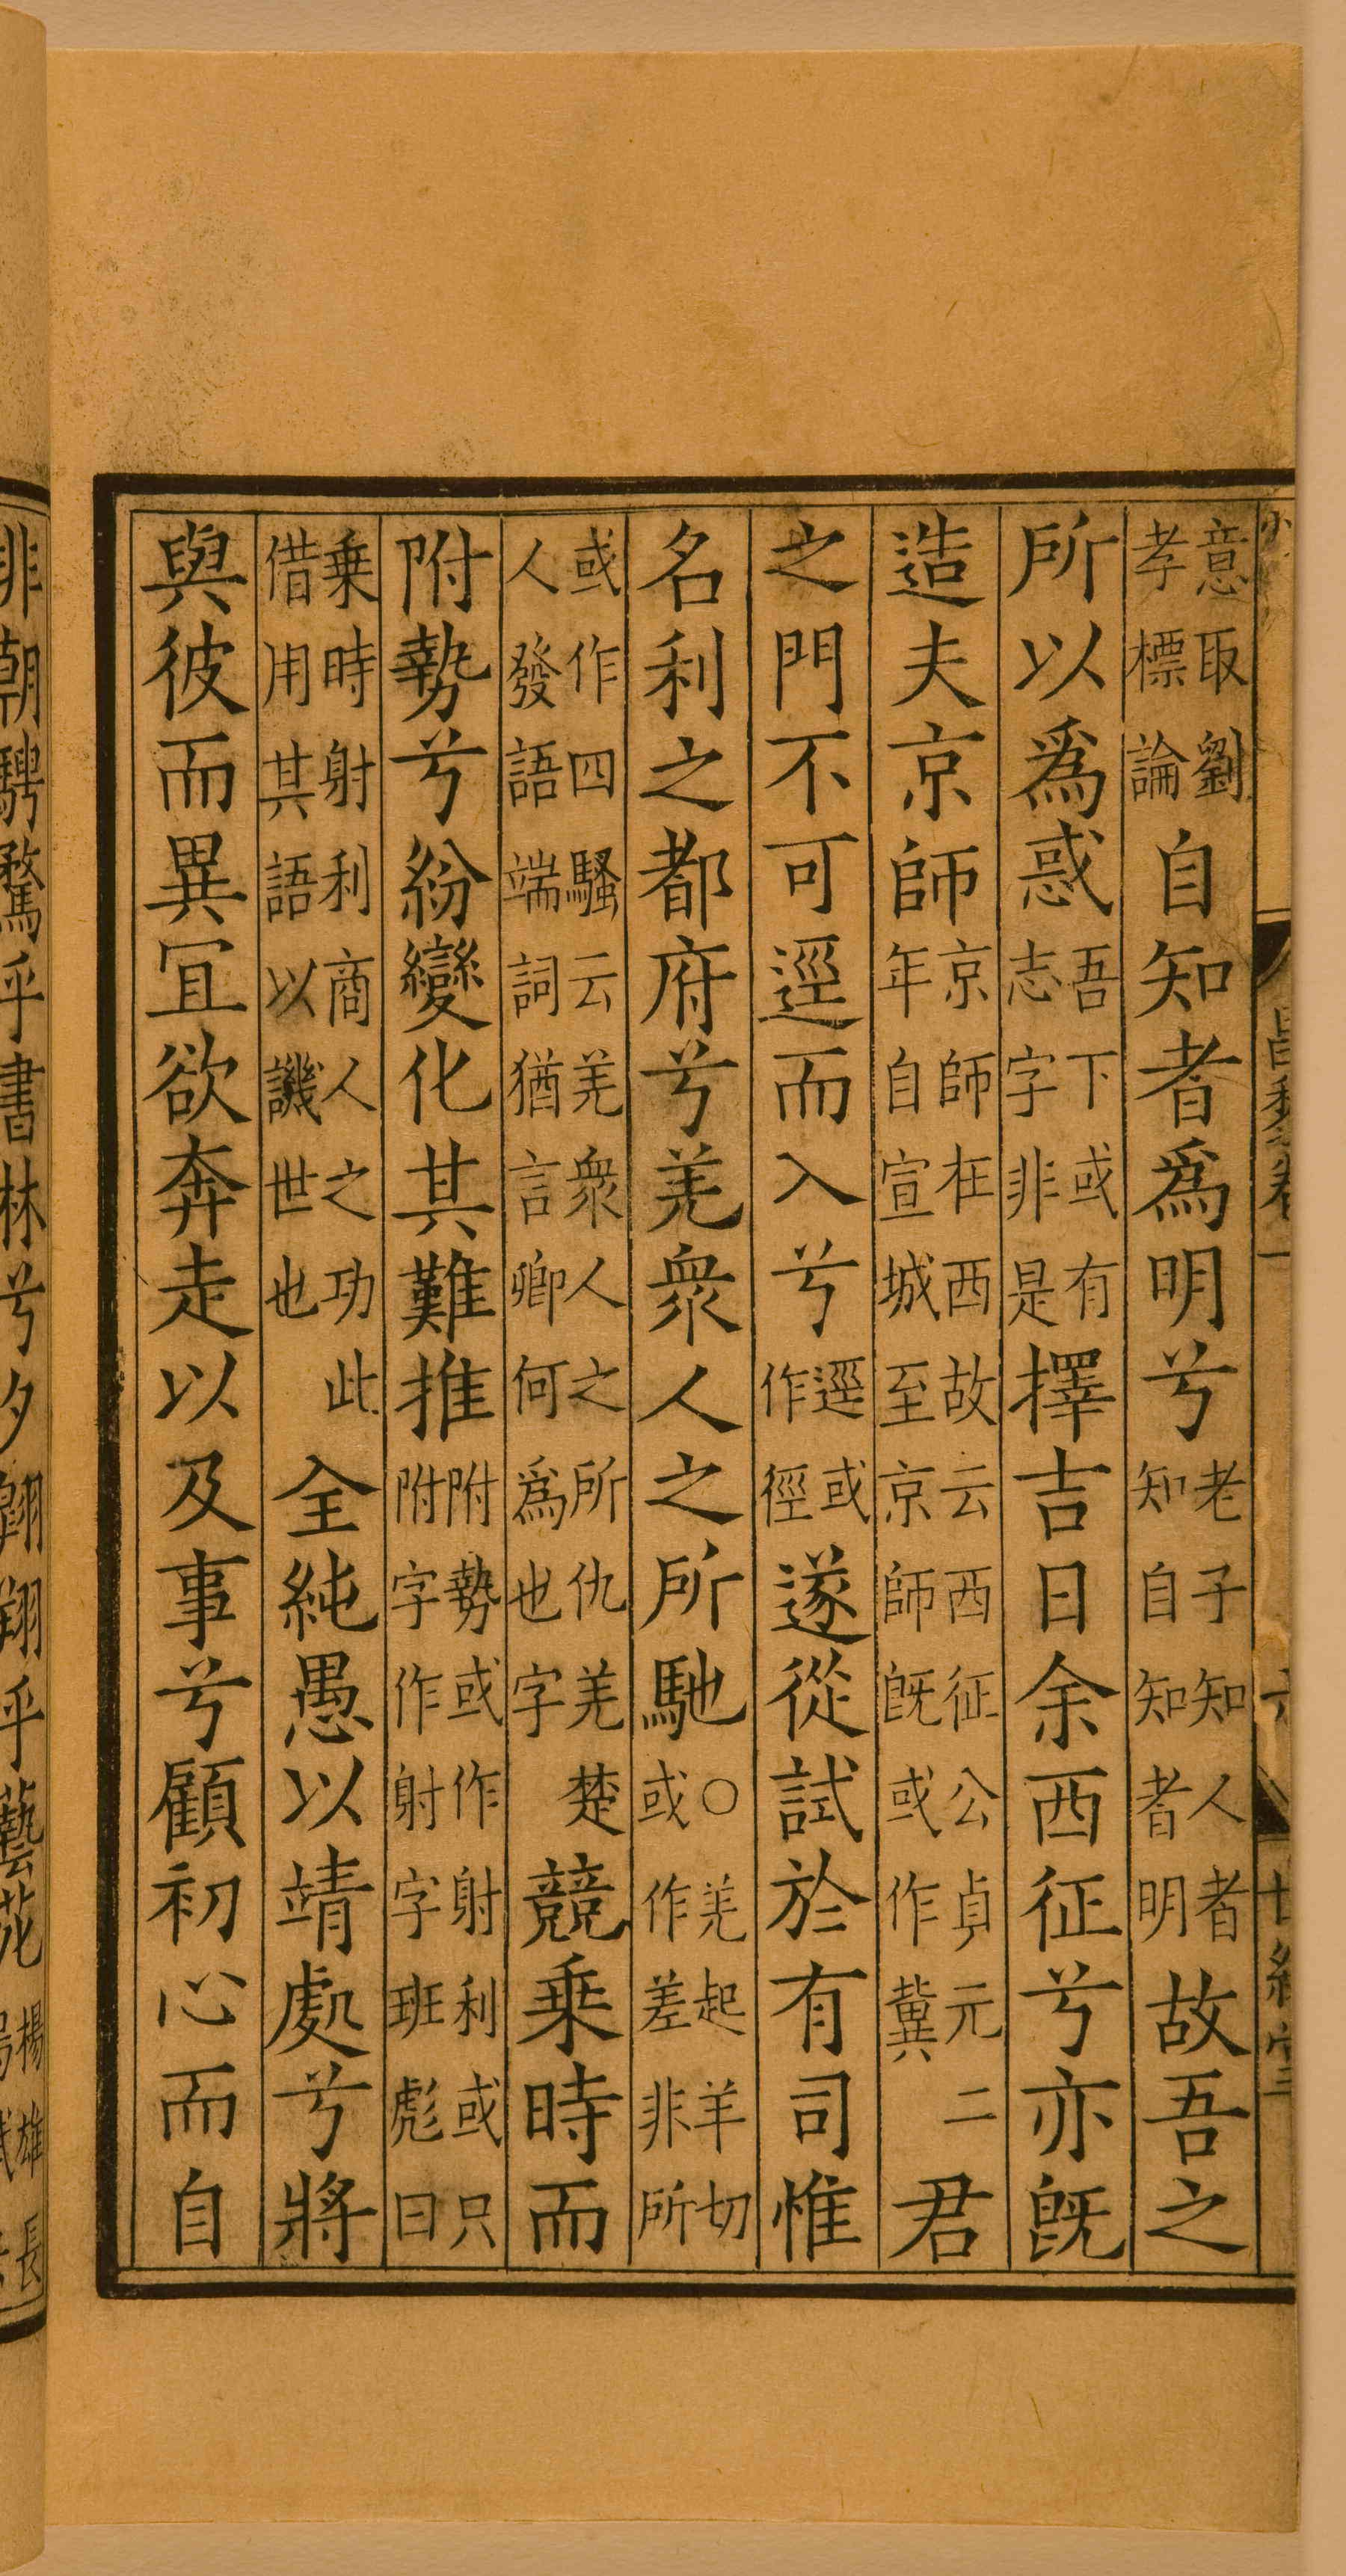 意取劉孝標論自知者爲明兮老子知人者知自知者明故吾之
所以爲惑吾下或有志字非是擇吉日余西征兮亦旣
造夫京師京師在西故云西征公貞元二年自宣城至京師旣或作冀君
之門不可逕而入兮逕或作徑遂從試於有司惟
名利之都府兮羌衆人之所馳○羌起羊切或作差非所
或作四騷云羌衆人之所仇羌楚人發語端詞猶言卿何爲也字競乗時而
附勢兮紛變化其難推附勢或作射利或只附字作射字班彪曰
乗時射利商人之功此借用其語以譏世也全純愚以靖處兮將
與彼而異宜欲奔走以及事兮顧初心而自
非朝騁騖乎書林兮夕翺翔乎藝苑楊雄長